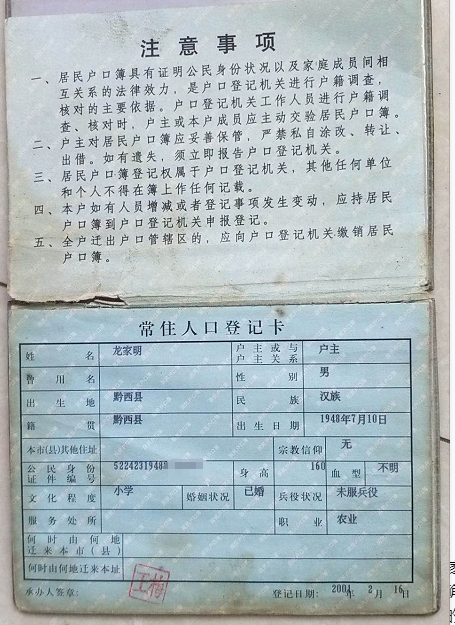 注意事项
一、居民户口簿具有证明公民身份状况以及家庭成员间相
互关系的法律效力，是户口登记机关进行户籍调查，
核对的主要依据。户口登记机关工作人员进行户籍调
查、核对时，户主或本户成员应主动交验居民户口簿。
二、户主对居民户口簿应妥善保管，严禁私自涂改、转让、
出借。如有遗失，须立即报告户口登记机关。
三、居民户口簿登记权属于户口登记机关，其他任何单位
和个人不得在簿上作任何记载。
四、本户如有人员增减或者登记事项发生变动，应持居民
户口簿到户口登记机关申报登记。
五、全户迁出户口管辖区的，应向户口登记机关缴销居民
户口簿。
常住人口登记卡
姓名 龙家明 户主或与户主关系 户主
曾用名 性别 男
出生地 黔西县 民族 汉族
籍贯 黔西县 出生日期 1948年7月10日
本市(县)其他住址 宗教信仰 无
公民身份证件编号 5224231948 身高 160 血型 不明
文化程度 小学 婚姻状况 已婚 兵役状况 未服兵役
服务处所 职业 农业
何时由何地迁来本市(县)
何时由何地迁来本址
承办人签章： 登记日期：2001年2月16日